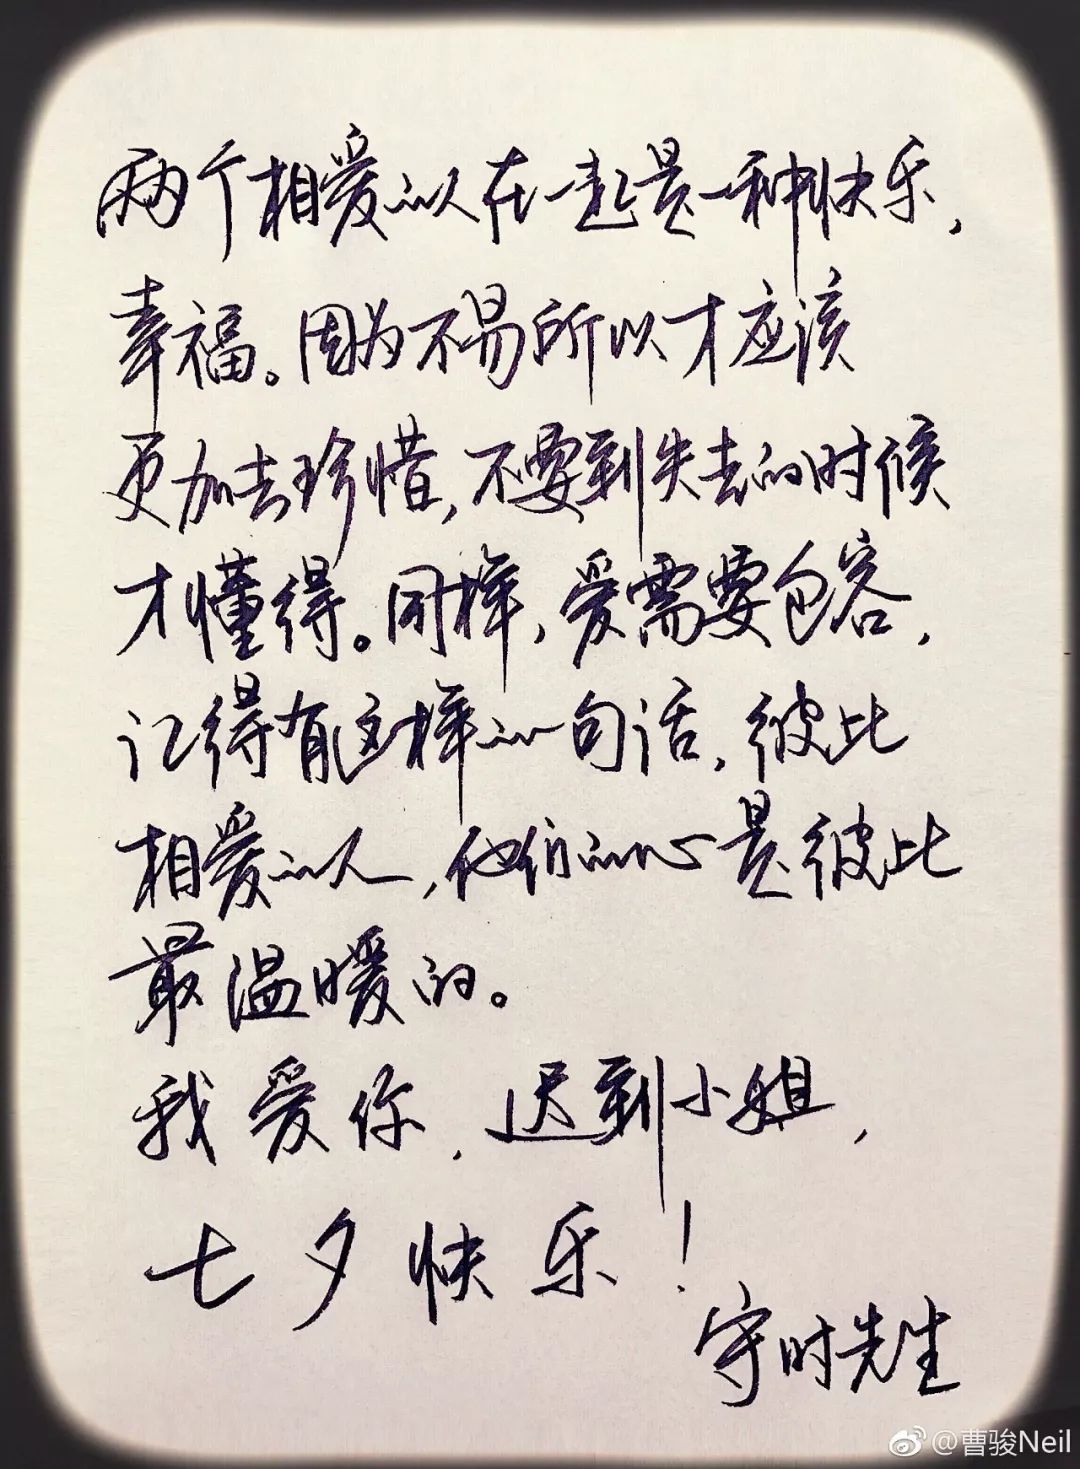 两个相爱的人在一起是一种快乐，
幸福。因为不易所以才应该
更加去珍惜，不要到失去的时候
才懂得。同样，爱需要包容，
记得有这样的一句话，彼此
相爱的人，他们的心是彼此
最温暖的。
我爱你，迟到小姐，
七夕快乐！
守时先生
@曹骏Neil